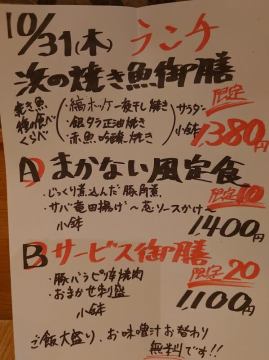 10/31(木) ランチ
浜の焼き魚御膳
焼き魚 ・縞ホッケ一夜干し焼き サラダ 限定
食べ ・銀タラ正油焼き 小鉢
くらべ ・赤魚吟醸焼き 1380円
A まかない風定食
・じっくり煮込んだ豚角煮 限定10
・サバ竜田揚げ〜葱ソースかけ〜
小鉢 1400円
B サービス御膳
・豚バラピリ辛焼肉 限定20
・おまかせ刺盛 1100円
小鉢
ご飯大盛り、お味噌汁お替わり
無料です!!